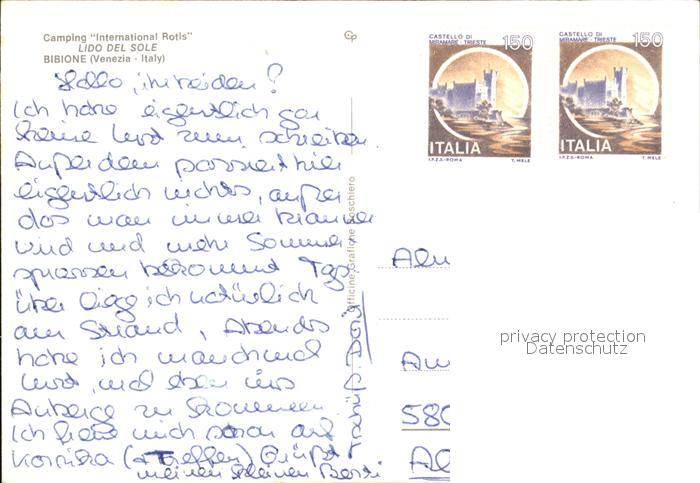 Camping "International Rotis"
LIDO DEL SOLE
BIBIONE (Venezia - Italy)
Hallo, ihr beiden!
Ich habe eigentlich gar
keine Lust zum schreiben.
Außerdem passiert hier
eigentlich nichts, außer
das man immer brauner
wird und mehr Sommer-
sprossen bekommt. Tags-
über liege ich natürlich
am Strand, Abends
habe ich manchmal
Lust, mal eben ins
zu kommen.
Ich freue mich schon auf
Grüßt
meinen kleinen
Officine Grafiche
CASTELLO DI
MIRAMARE - TRIESTE
150
ITALIA
I.P.Z.S.-ROMA T. MELE
CASTELLO DI
MIRAMARE - TRIESTE
150
ITALIA
I.P.Z.S.-ROMA T. MELE
580
privacy protection
Datenschutz